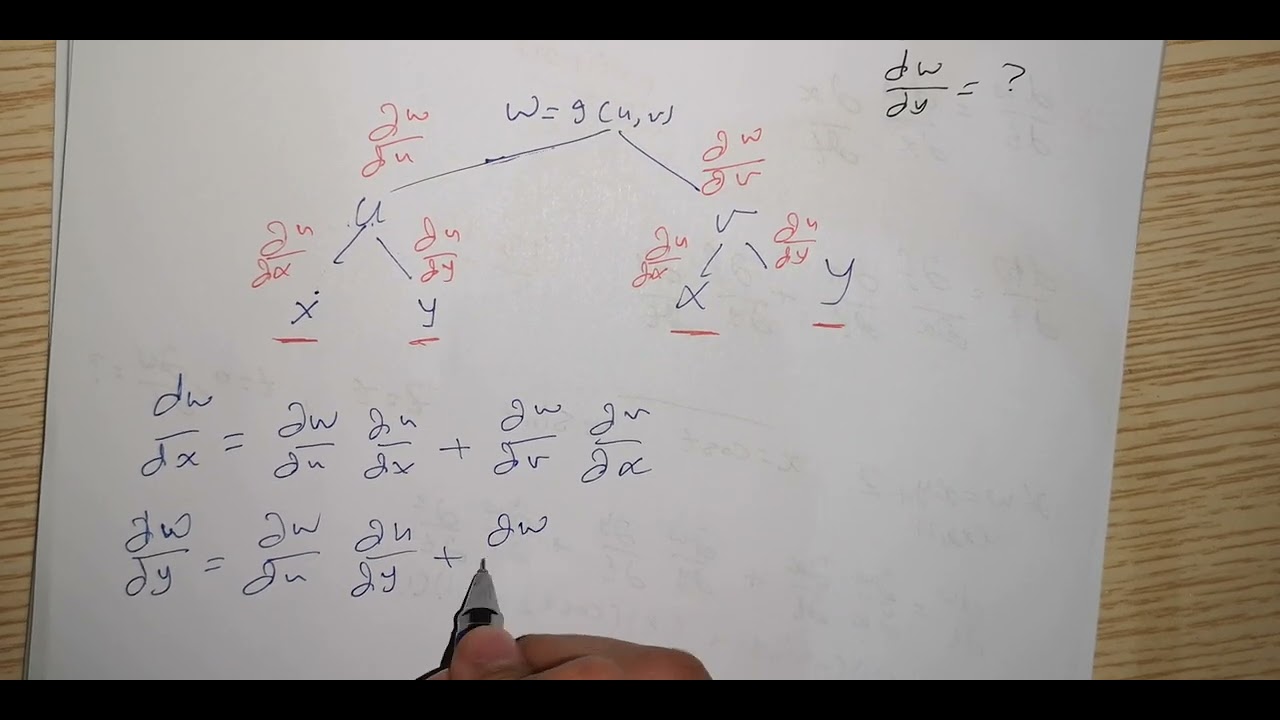 dw/dy = ?
w = g(u,v)
∂w/∂u ∂w/∂v
u v
∂u/∂x ∂u/∂y ∂u/∂x ∂u/∂y
x y x y
dw/dx = ∂w/∂u ∂u/∂x + ∂w/∂v ∂v/∂x
∂w/∂y = ∂w/∂u ∂u/∂y + ∂w